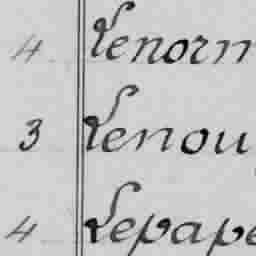 4 Lenorm
3 Lenou
4 Lepape